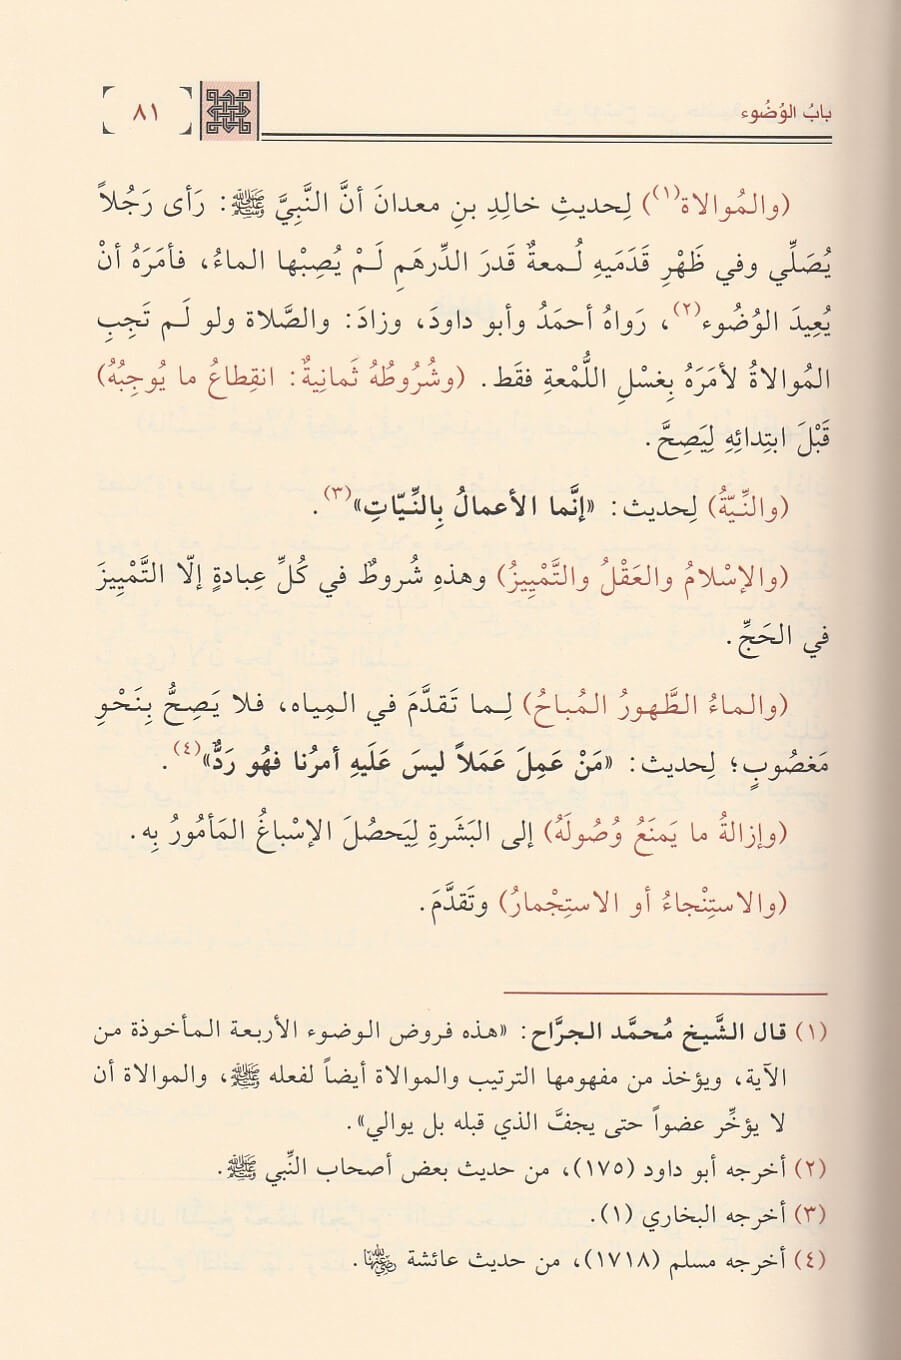 بابُ الوُضُوء
٨١
(والمُوالاة(١)) لِحديثِ خالِدِ بنِ معدانَ أنَّ النَّبِيَّ ﷺ: رَأى رَجُلاً
يُصَلِّي وفي ظَهْرِ قَدَمَيهِ لُـمعةٌ قَدرَ الدِّرهَمِ لَـمْ يُصِبْها الماءُ، فأمَرَهُ أنْ
يُعِيدَ الوُضُوء(٢)، رَواهُ أحمَدُ وأبو داودَ، وزادَ: والصَّلاة ولو لَـم تَجِبِ
المُوالاةُ لأمَرَهُ بِغَسْلِ اللُّمْعةِ فقَط. (وشُرُوطُهُ ثَمانِيةٌ: انقِطاعُ ما يُوجِبُهُ)
قَبْلَ ابتِدائِهِ لِيَصِحَّ.
(والنِّـيّةُ) لِحديث: «إنَّما الأعمالُ بِالنِّـيّاتِ»(٣).
(والإسْلامُ والعَقْلُ والتَّمْيِيزُ) وهذهِ شُروطٌ في كُلِّ عِبادةٍ إلّا التَّمْيِيزَ
في الحَجِّ.
(والـماءُ الطَّهورُ المُباحُ) لِـما تَقدَّمَ في المِياه، فلا يَصِحُّ بِنَحْوِ
مَغصُوبٍ؛ لِحديث: «مَنْ عَمِلَ عَمَلاً ليسَ عَلَيهِ أمرُنا فهُو رَدٌّ»(٤).
(وإزالةُ ما يَمنَعُ وُصُولَهُ) إلى البَشَرةِ لِيَحصُلَ الإسْباغُ المَأمُورُ بِه.
(والاستِنْجاءُ أو الاستِجْمارُ) وتَقدَّمَ.
(١) قال الشَّيخ مُحمَّد الجرَّاح: «هذه فروض الوضوء الأربعة المأخوذة من
الآية، ويؤخذ من مفهومها الترتيب والموالاة أيضاً لفعله ﷺ، والموالاة أن
لا يؤخِّر عضواً حتى يجفَّ الذي قبله بل يوالي».
(٢) أخرجه أبو داود (١٧٥)، من حديث بعض أصحاب النَّبي ﷺ.
(٣) أخرجه البخاري (١).
(٤) أخرجه مسلم (١٧١٨)، من حديث عائشة رضي الله عنها.